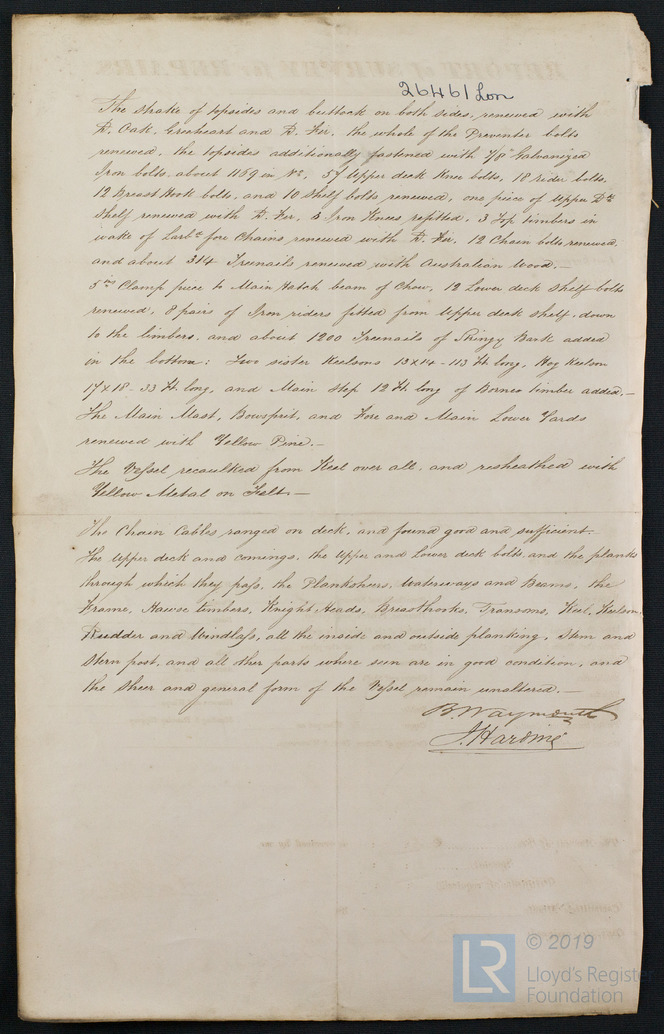 26461 Lon
The strake of topsides and buttock on both sides, renewed with
B. Oak, Greenheart and B. Fir, the whole of the Preventer bolts
renewed, the topsides additionally fastened with 7/8 Galvanized
Iron bolts, about 1169 in No, 57 Upper deck Knee bolts, 18 rider bolts,
12 Breast Hook bolts, and 10 Shelf bolts renewed, one piece of Upper Dk
Shelf renewed with B. Fir, Iron Knees refitted, 3 Top timbers in
wake of Larbd fore Chains renewed with B. Fir, 12 Chain bolts renewed,
and about 314 Treenails renewed with Australian Wood.—
Clamp piece to Main Hatch beam of Chow, 12 Lower deck Shelf bolts
renewed, 8 pairs of Iron riders fitted from Upper deck shelf, down
to the limbers, and about 1200 Treenails of Stringy Bark added
in the bottom: Two sister Keelsons 13x14 - 113 Ft. long, Hog Keelson
17x18 - 33 Ft. long, and Main Step 12 Ft. long of Borneo timber added.—
The Main Mast, Bowsprit, and Fore and Main Lower Yards
renewed with Yellow Pine.—
The Vessel recaulked from Keel over all, and resheathed with
Yellow Metal on Felt.—
The Chain Cables ranged on deck, and found good and sufficient.
The Upper deck and comings, the Upper and Lower deck bolts and the planks
through which they pass, the Planksheers, Waterways and Beams, the
Frame, Hawse timbers, Knight Heads, Breasthooks, Transoms, Keel, Keelson,
Rudder and Windlass, all the inside and outside planking, Stem and
Stern post, and all other parts where seen are in good condition, and
the Sheer and general form of the Vessel remain unaltered.—
B. Waymouth
J. Harding
LR © 2019
Lloyd's Register
Foundation